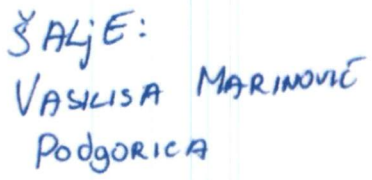 ŠALjE:
VASILISA MARINOVIĆ
PodgORICA